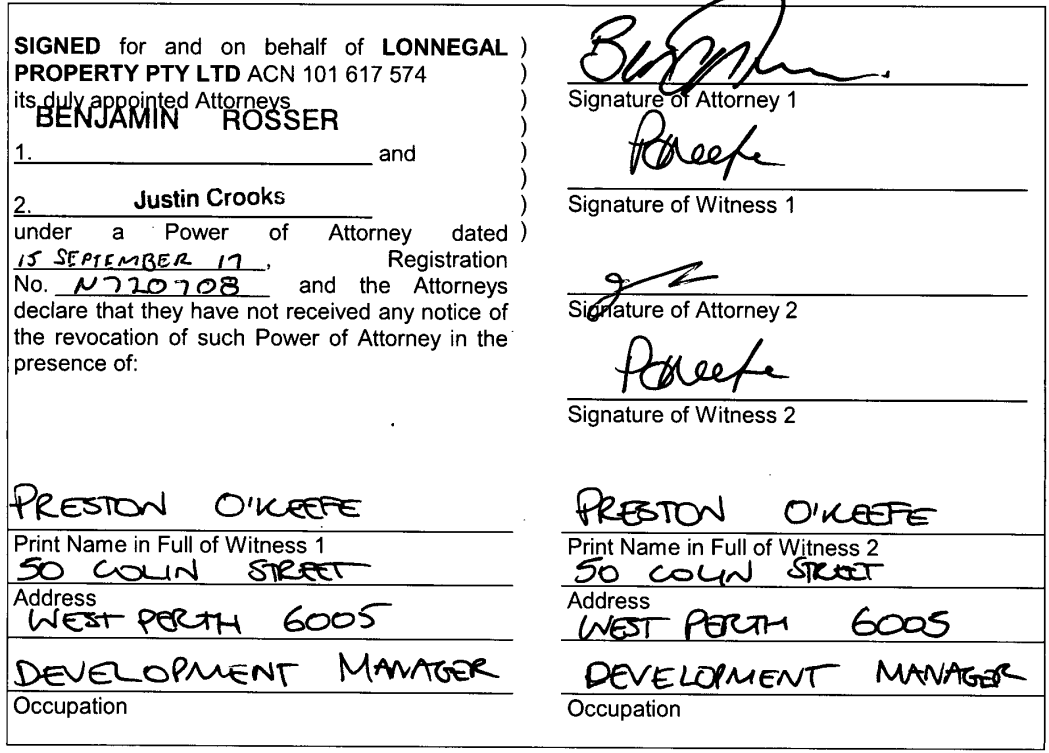 SIGNED for and on behalf of LONNEGAL )
PROPERTY PTY LTD ACN 101 617 574 )
its duly appointed Attorneys )
BENJAMIN ROSSER )
1. and )
)
2. Justin Crooks )
under a Power of Attorney dated )
15 SEPTEMBER 17, Registration
No. N720708 and the Attorneys
declare that they have not received any notice of
the revocation of such Power of Attorney in the
presence of:
Signature of Attorney 1
POKeefe
Signature of Witness 1
Signature of Attorney 2
POKeefe
Signature of Witness 2
PRESTON O'KEEFE
Print Name in Full of Witness 1
50 COLIN STREET
Address
WEST PERTH 6005
DEVELOPMENT MANAGER
Occupation
PRESTON O'KEEFE
Print Name in Full of Witness 2
50 COLIN STREET
Address
WEST PERTH 6005
DEVELOPMENT MANAGER
Occupation